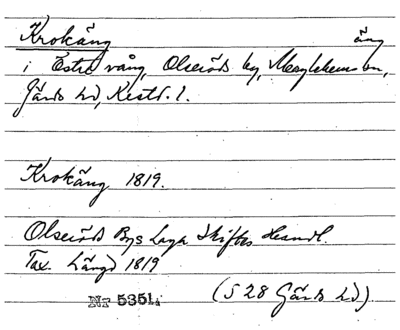 Krokäng äng
i Östra vång, Olseröds by, Maglehems sn,
Gärds hd, Krist. l.
Krokäng 1819.
Olseröds Bys Laga Skiftes Handl.
Tax. Längd 1819
Nr 5351. (S 28 Gärds hd)